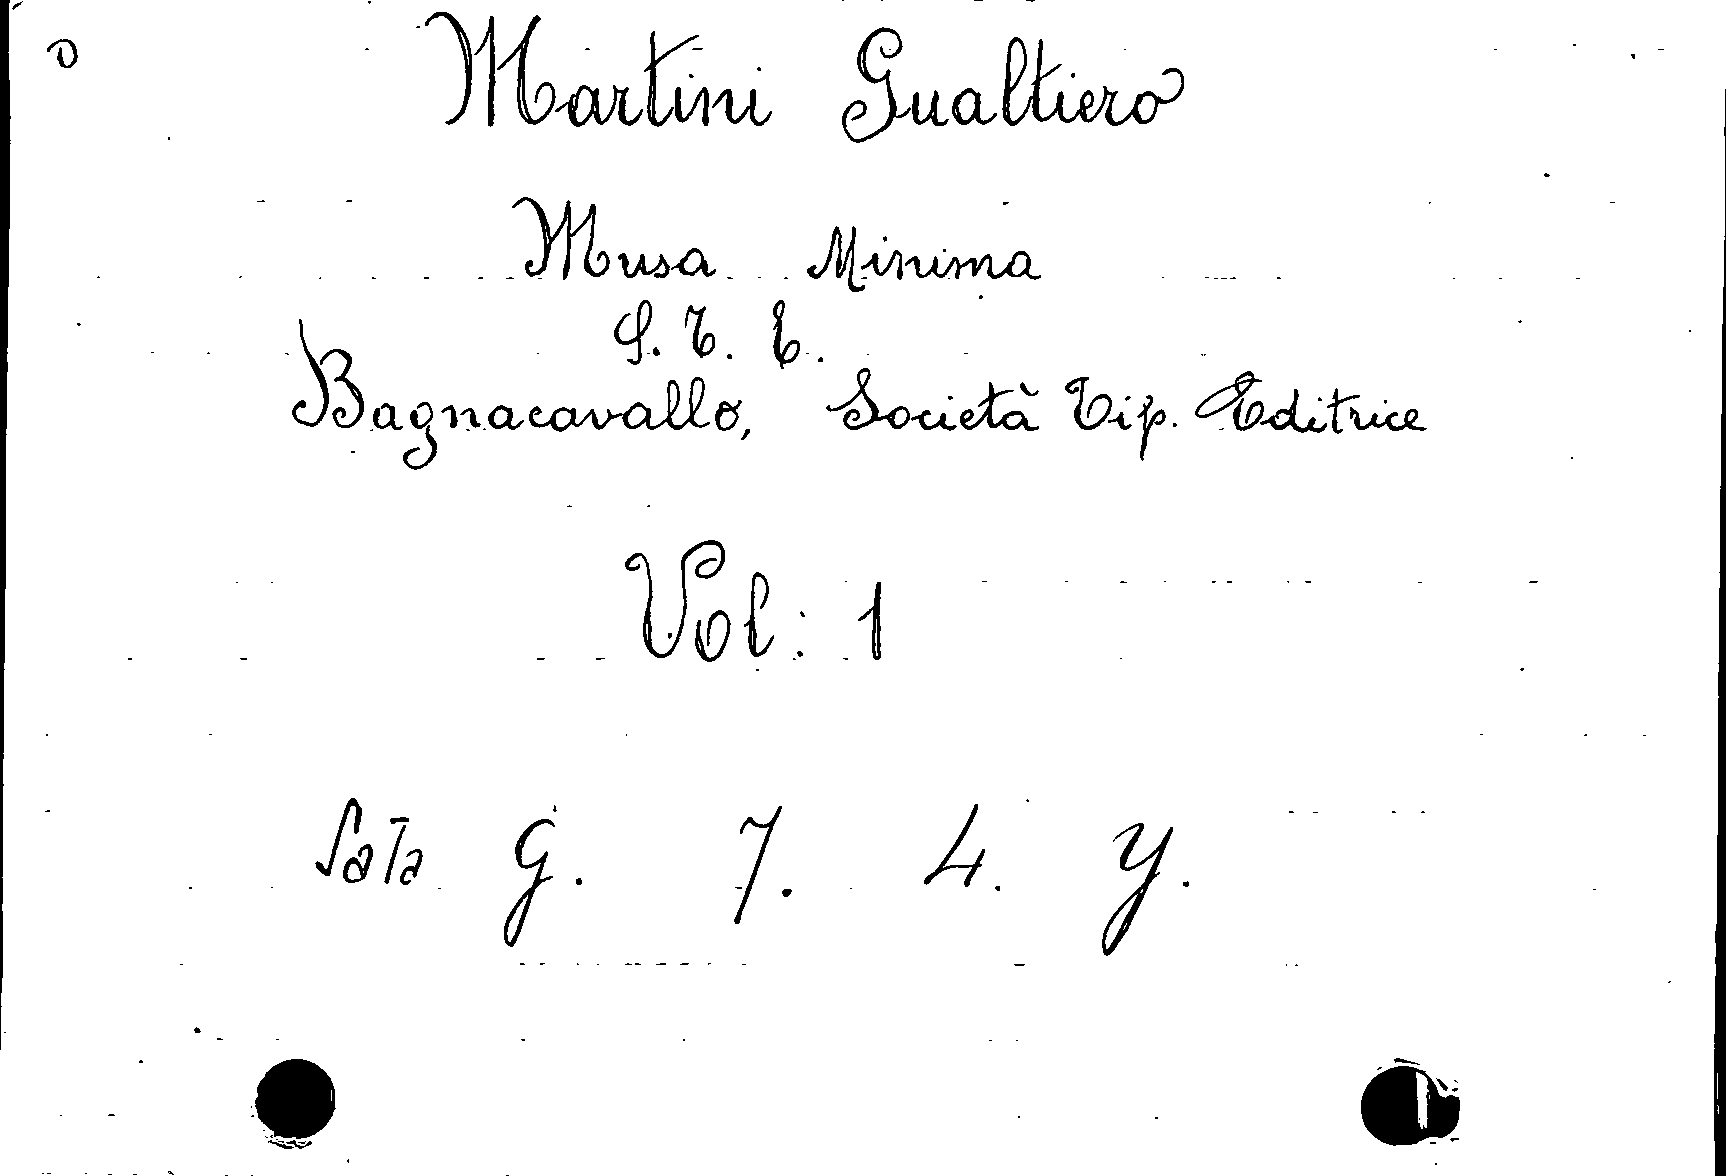 D
Martini Gualtiero
Musa Minima
S. T. E.
Bagnacavallo, Società Tip. Editrice
Vol: 1
Sala G. 7. 4. Y.